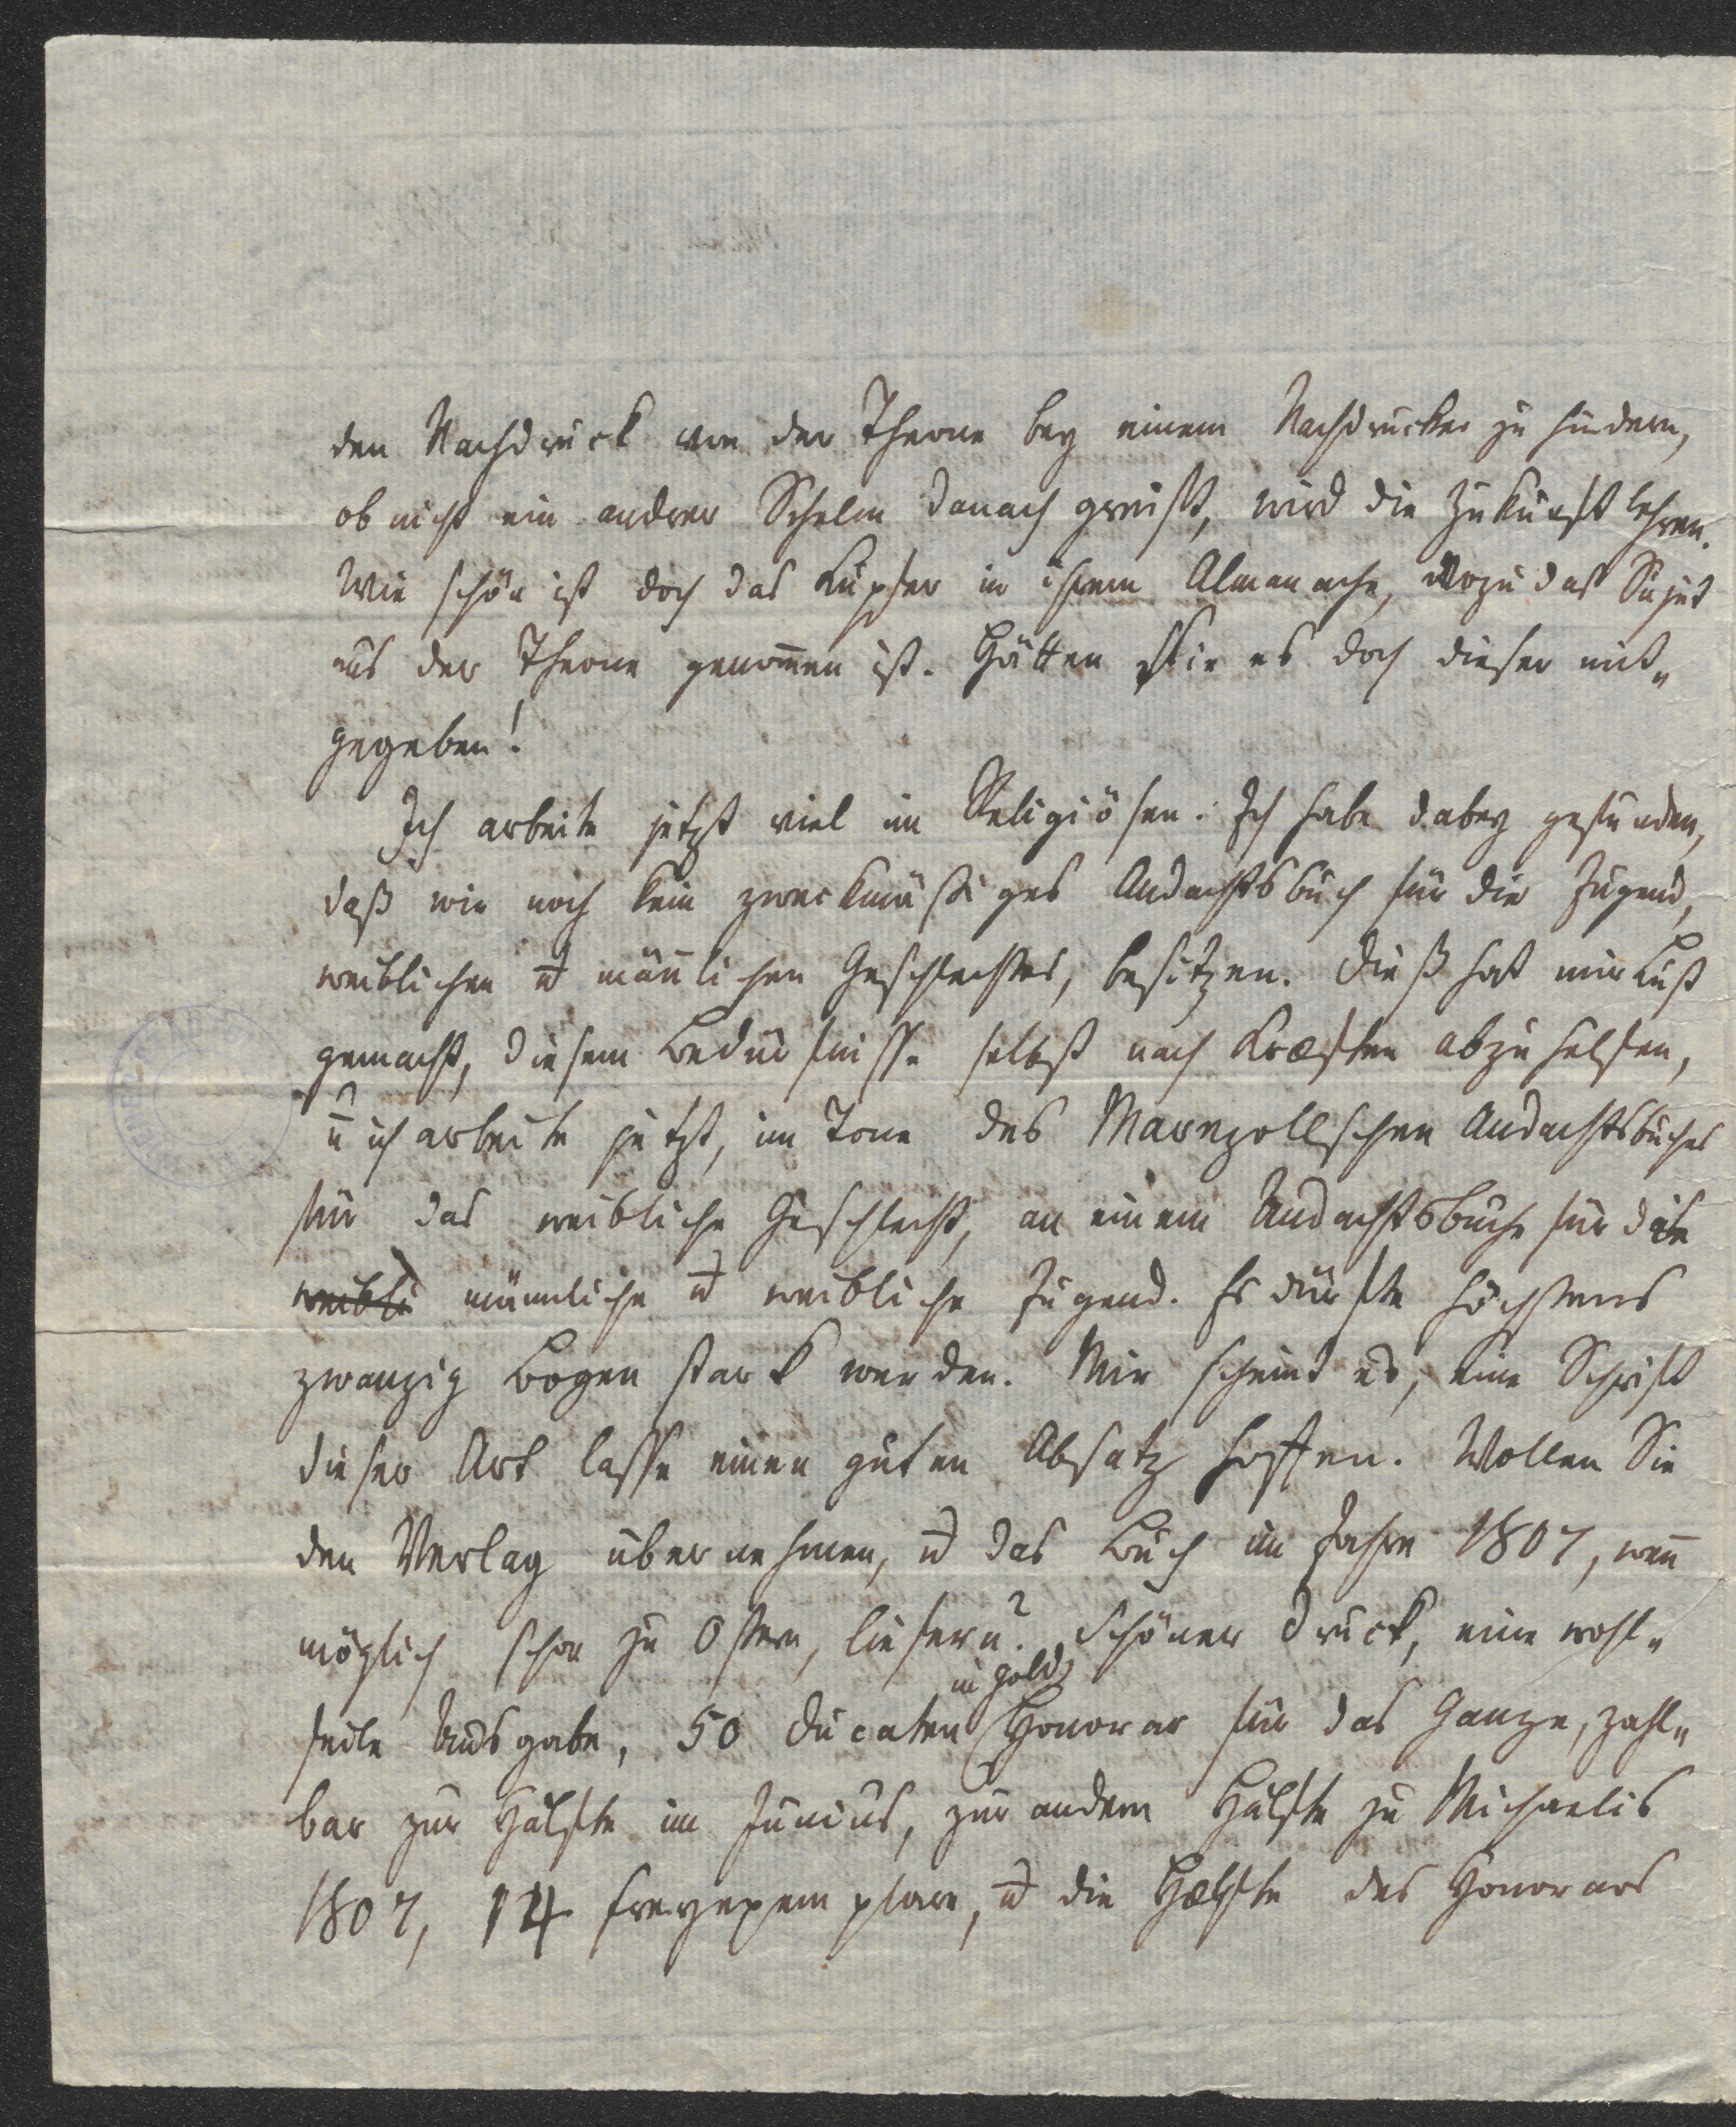 den Nachdruck von der Theone bey einem Nachdrucker zu hindern,
ob nicht ein andrer Schelm danach greift, wird die Zukunft lehren.
Wie schön ist doch das Kupfer in ihrem Almanache, wozu das Sujet
aus der Theone genom̄en ist. Hätten Sie es doch dieser mit„
gegeben!
Ich arbeite jetzt viel im Religiösen. Ich habe dabey gefunden,
daß wir noch kein zweckmäßiges Andachtsbuch für die Jugend,
weiblichen u män̄lichen Geschlechtes, besitzen. Dieß hat mir Lust
gemacht, diesem Bedürfnisse selbst nach Kræften abzuhelfen,
u ich arbeite jetzt, im Tone des Marezollschen Andachtsbuches
für das weibliche Geschlecht, an einem Andachtsbuche für die
weibli männliche u weibliche Jugend. Es dürfte höchstens
zwanzig Bogen stark werden. Mir scheint es, eine Schrift
dieser Art lasse einen guten Absatz hoffen. Wollen Sie
den Verlag übernehmen, u das Buch im Jahre 1807, wen̄
möglich schon zu Ostern, liefern? Schöner Druck, eine wohl„
in Gold
feile Ausgabe, 50 Ducaten Honorar für das Ganze, zahl„
bar zur Hälfte im Junius, zur andern Hälfte zu Michaelis
1807, 14 Freyexemplare, u die Hælfte des Honorars